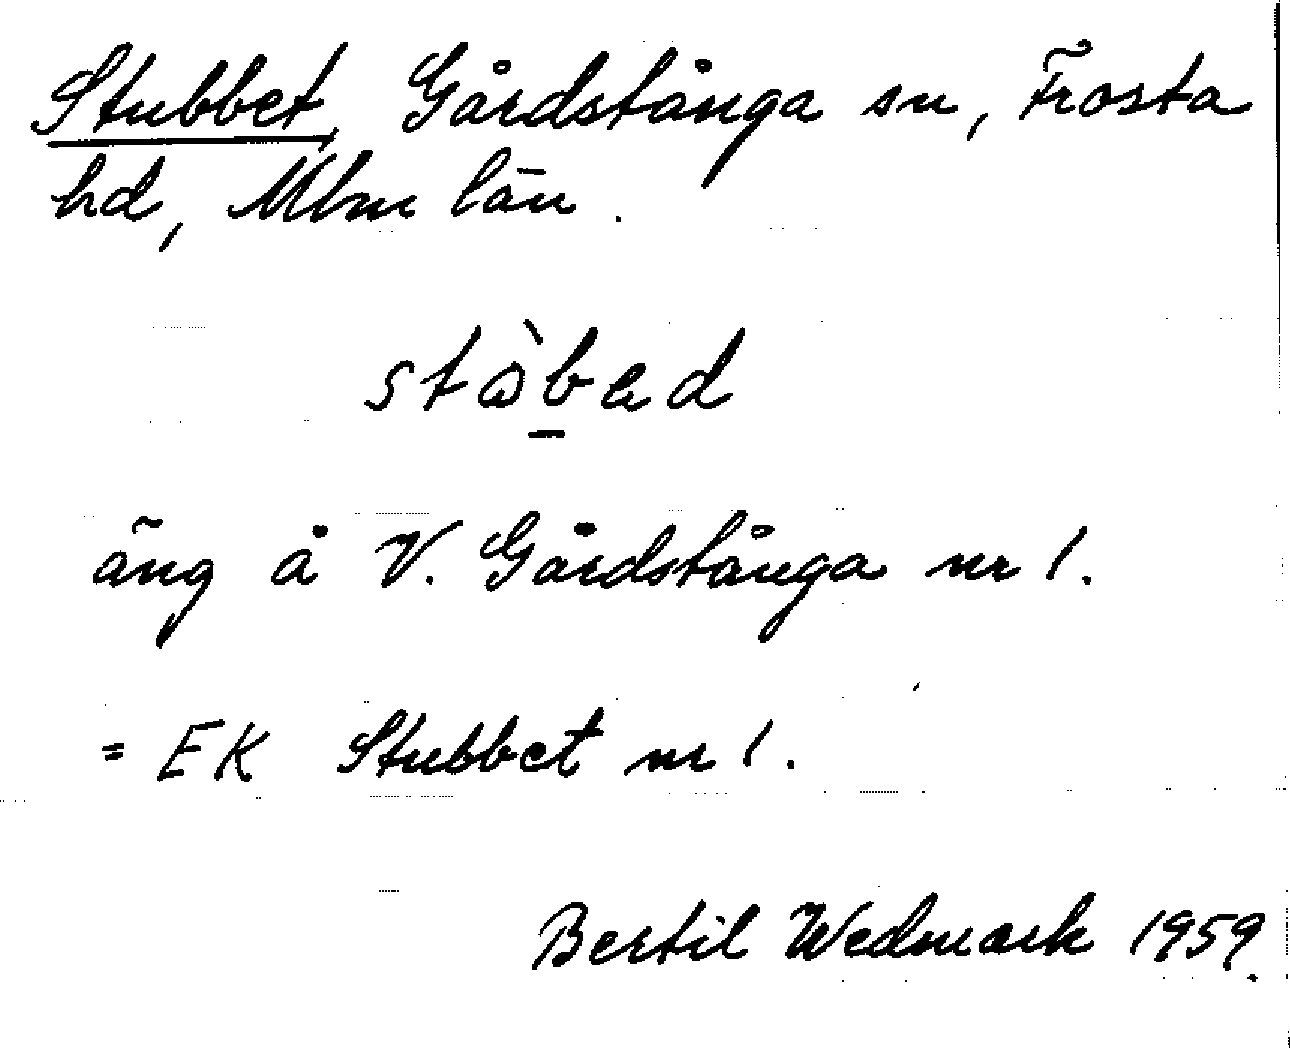 Stubbet, Gårdstånga sn, Frosta
hd, Mlm län.
äng å V. Gårdstånga nr 1.
= EK Stubbet nr 1.
Bertil Wedmark 1959.